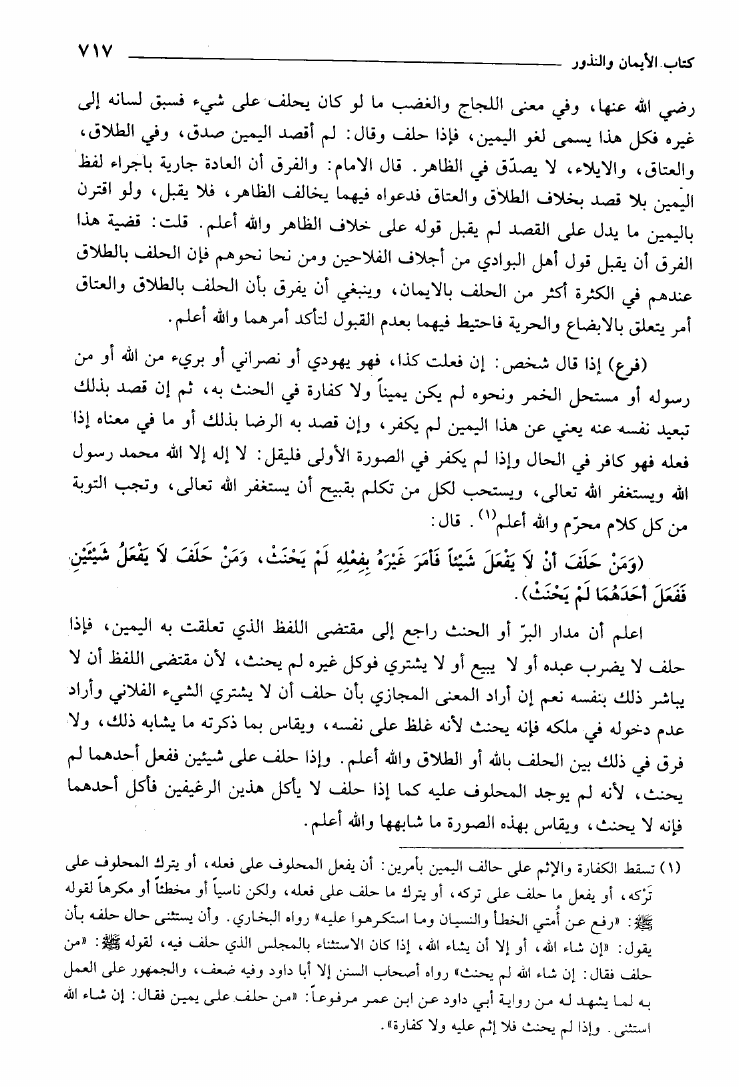 كتاب الأيمان والنذور ٧١٧
رضي الله عنها، وفي معنى اللجاج والغضب ما لو كان يحلف على شيء فسبق لسانه إلى
غيره فكل هذا يسمى لغو اليمين، فإذا حلف وقال: لم أقصد اليمين صدق، وفي الطلاق،
والعتاق، والايلاء، لا يصدّق في الظاهر. قال الامام: والفرق أن العادة جارية باجراء لفظ
اليمين بلا قصد بخلاف الطلاق والعتاق فدعواه فيهما يخالف الظاهر، فلا يقبل، ولو اقترن
باليمين ما يدل على القصد لم يقبل قوله على خلاف الظاهر والله أعلم. قلت: قضية هذا
الفرق أن يقبل قول أهل البوادي من أجلاف الفلاحين ومن نحا نحوهم فإن الحلف بالطلاق
عندهم في الكثرة أكثر من الحلف بالايمان، وينبغي أن يفرق بأن الحلف بالطلاق والعتاق
أمر يتعلق بالابضاع والحرية فاحتيط فيهما بعدم القبول لتأكد أمرهما والله أعلم.
(فرع) إذا قال شخص: إن فعلت كذا، فهو يهودي أو نصراني أو بريء من الله أو من
رسوله أو مستحل الخمر ونحوه لم يكن يميناً ولا كفارة في الحنث به، ثم إن قصد بذلك
تبعيد نفسه عنه يعني عن هذا اليمين لم يكفر، وإن قصد به الرضا بذلك أو ما في معناه إذا
فعله فهو كافر في الحال وإذا لم يكفر في الصورة الأولى فليقل: لا إله إلا الله محمد رسول
الله ويستغفر الله تعالى، ويستحب لكل من تكلم بقبيح أن يستغفر الله تعالى، وتجب التوبة
من كل كلام محرّم والله أعلم(١). قال:
(وَمَنْ حَلَفَ أَنْ لَا يَفْعَلَ شَيْئاً فَأَمَرَ غَيْرَهُ بِفِعْلِهِ لَمْ يَحْنَثْ، وَمَنْ حَلَفَ لَا يَفْعَلُ شَيْئَيْنِ
فَفَعَلَ أَحَدَهُمَا لَمْ يَحْنَثْ).
اعلم أن مدار البرّ أو الحنث راجع إلى مقتضى اللفظ الذي تعلقت به اليمين، فإذا
حلف لا يضرب عبده أو لا يبيع أو لا يشتري فوكل غيره لم يحنث، لأن مقتضى اللفظ أن لا
يباشر ذلك بنفسه نعم إن أراد المعنى المجازي بأن حلف أن لا يشتري الشيء الفلاني وأراد
عدم دخوله في ملكه فإنه يحنث لأنه غلظ على نفسه، ويقاس بما ذكرته ما يشابه ذلك، ولا
فرق في ذلك بين الحلف بالله أو الطلاق والله أعلم. وإذا حلف على شيئين ففعل أحدهما لم
يحنث، لأنه لم يوجد المحلوف عليه كما إذا حلف لا يأكل هذين الرغيفين فأكل أحدهما
فإنه لا يحنث، ويقاس بهذه الصورة ما شابهها والله أعلم.
(١) تسقط الكفارة والإثم على حالف اليمين بأمرين: أن يفعل المحلوف على فعله، أو يترك المحلوف على
تَرْكه، أو يفعل ما حلف على تركه، أو يترك ما حلف على فعله، ولكن ناسياً أو مخطئاً أو مكرهاً لقوله
ﷺ: «رفع عن أُمتي الخطأ والنسيان وما استكرهوا عليه» رواه البخاري. وأن يستثنى حال حلفه بأن
يقول: «إن شاء الله، أو إلا أن يشاء الله، إذا كان الاستثناء بالمجلس الذي حلف فيه، لقوله ﷺ: «من
حلف فقال: إن شاء الله لم يحنث» رواه أصحاب السنن إلا أبا داود وفيه ضعف، والجمهور على العمل
به لما يشهد له من رواية أبي داود عن ابن عمر مرفوعاً: «من حلف على يمين فقال: إن شاء الله
استثنى. وإذا لم يحنث فلا إثم عليه ولا كفارة».